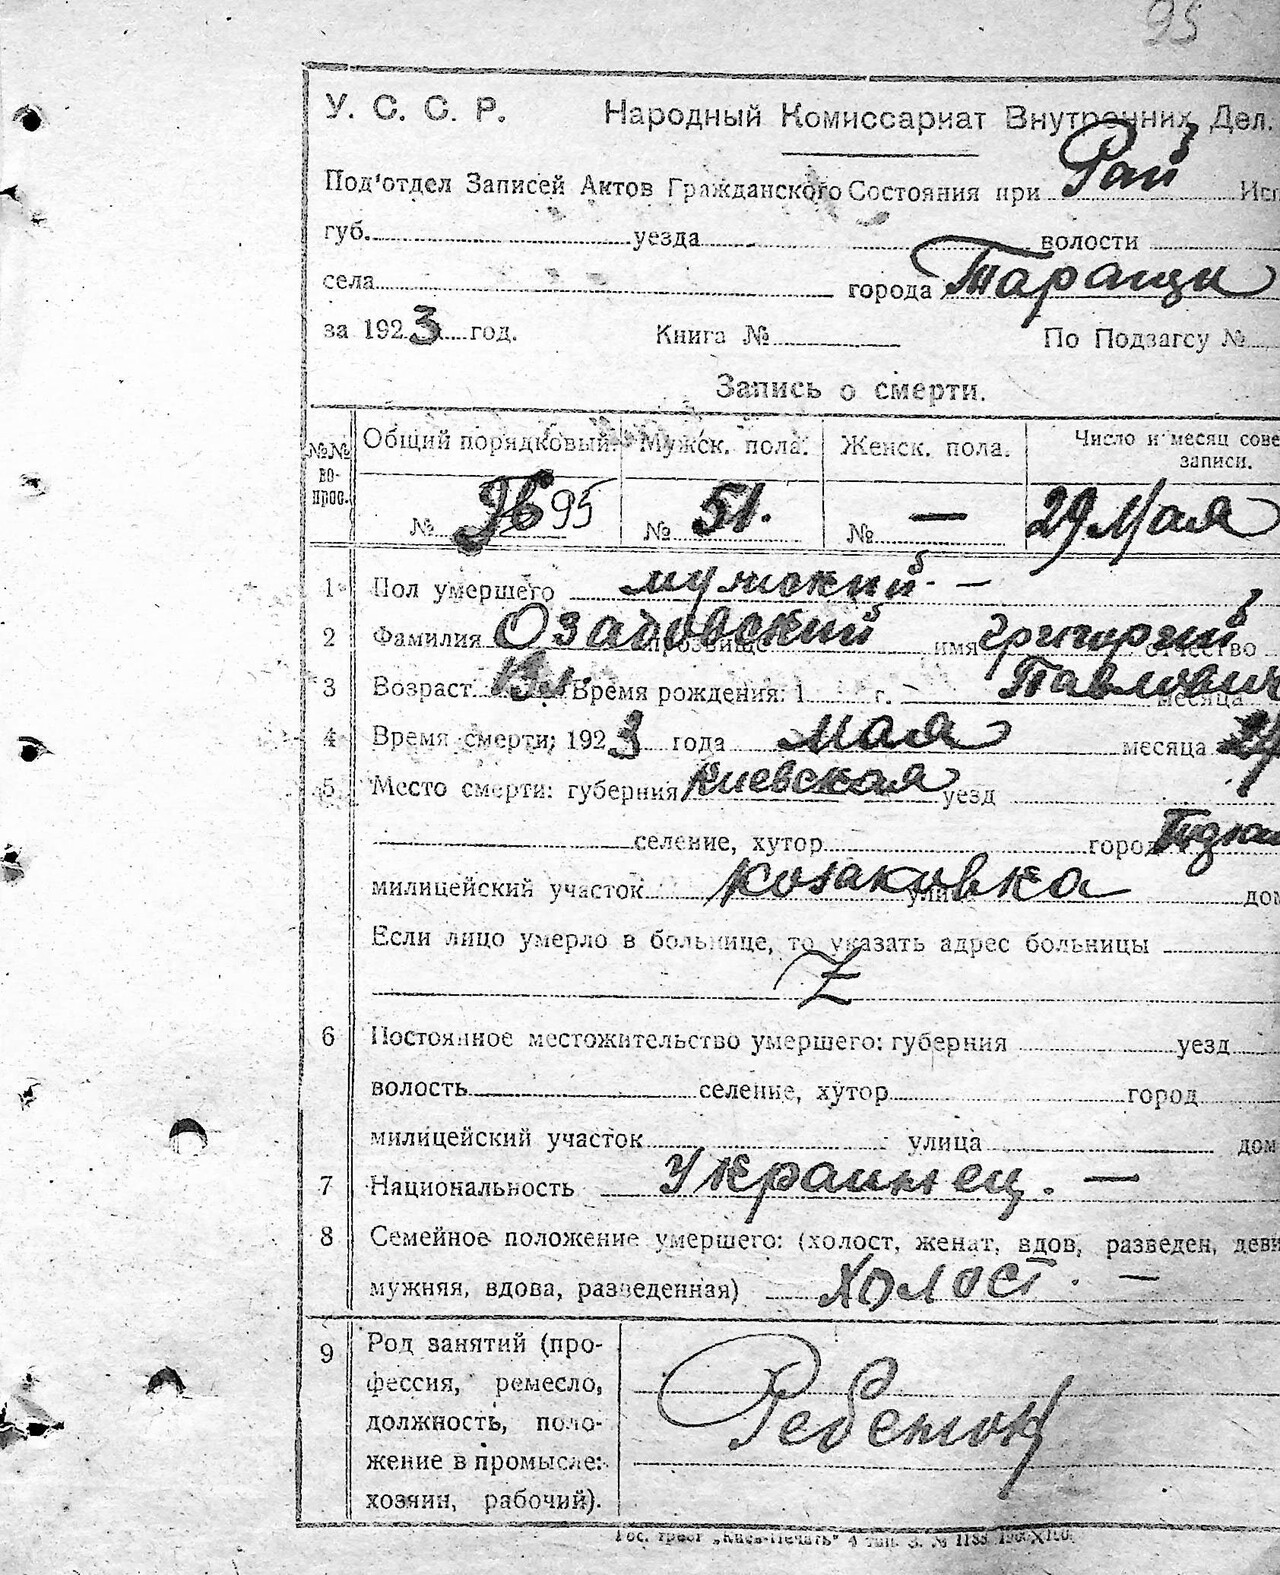 95
У. С. С. Р. Народный Комиссариат Внутренних Дел.
Под'отдел Записей Актов Гражданского Состояния при Рай Исп
губ. уезда волости
села города Таращи
за 1923 год. Книга № По Подзагсу №
Запись о смерти.
№№ вопрос. Общий порядковый. Мужск. пола. Женск. пола. Число и месяц сове
записи.
№ 96 95 № 51. № — 29 Мая
1 Пол умершего мужский —
2 Фамилия Озадовский прозвище имя Григорий отчество
Павлович
3 Возраст 13 л. Время рождения: 1 г. месяца
4 Время смерти; 1923 года Мая месяца
5 Место смерти: губерния Киевская уезд
селение, хутор город
милицейский участок Козаковка улица дом
Если лицо умерло в больнице, то указать адрес больницы
Z
6 Постоянное местожительство умершего: губерния уезд
волость селение, хутор город
милицейский участок улица дом
7 Национальность Украинец. —
8 Семейное положение умершего: (холост, женат, вдов, разведен, деви
мужняя, вдова, разведенная) Холост. —
9 Род занятий (про-
фессия, ремесло,
должность, поло- Ребенок
жение в промысле:
хозяин, рабочий).
Гос. трест „Киев-Печать" 4 тип. З. № 1188